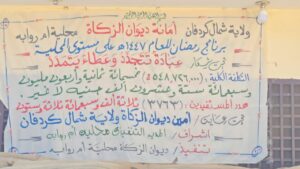 بسم الله الرحمن الرحيم
ولاية شمال كردفان أمانة ديوان الزكاة محلية أم روابه
برنامج رمضان للعام ١٤٤٧هـ على مستوى المحلية
عبادة تتجدد وعطاء يتمدد
التكلفة الكلية (٥٤٨٧٢٦٠٠٠) خمسمائة ثمانية وأربعون مليون
وسبعمائة ستة وعشرون ألف جنيه لا غير
عدد المستفيدين (٣٧٦٣) ثلاثة ألف وسبعمائة ثلاثة وستون
أمين ديوان الزكاة ولاية شمال كردفان
إشراف / المدير التنفيذي محلية أم روابه
تنفيذ / ديوان الزكاة محلية أم روابه